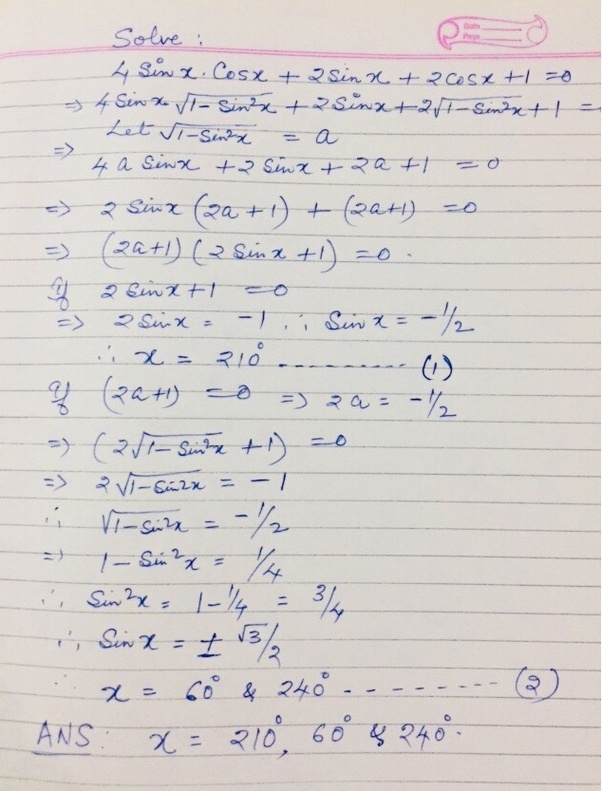 Date
Page
Solve :
4 Sin x . Cos x + 2 Sin x + 2 cos x + 1 = 0
⇒ 4 Sin x √(1 - Sin²x) + 2 Sin x + 2√(1 - Sin²x) + 1 =
Let √(1 - Sin²x) = a
⇒ 4 a Sin x + 2 Sin x + 2a + 1 = 0
⇒ 2 Sin x (2a + 1) + (2a+1) = 0
⇒ (2a+1) ( 2 Sin x + 1) = 0 .
If 2 Sin x + 1 = 0
⇒ 2 Sin x = -1 ∴ Sin x = -1/2
∴ x = 210° --------- (1)
If (2a+1) = 0 ⇒ 2a = -1/2
⇒ (2√(1 - Sin²x) + 1) = 0
⇒ 2√(1 - Sin²x) = -1
∴ √(1 - Sin²x) = -1/2
⇒ 1 - Sin²x = 1/4
∴ Sin²x = 1 - 1/4 = 3/4
∴ Sin x = ± √3/2
∴ x = 60° & 240° --------- (2)
ANS : x = 210°, 60° & 240°.